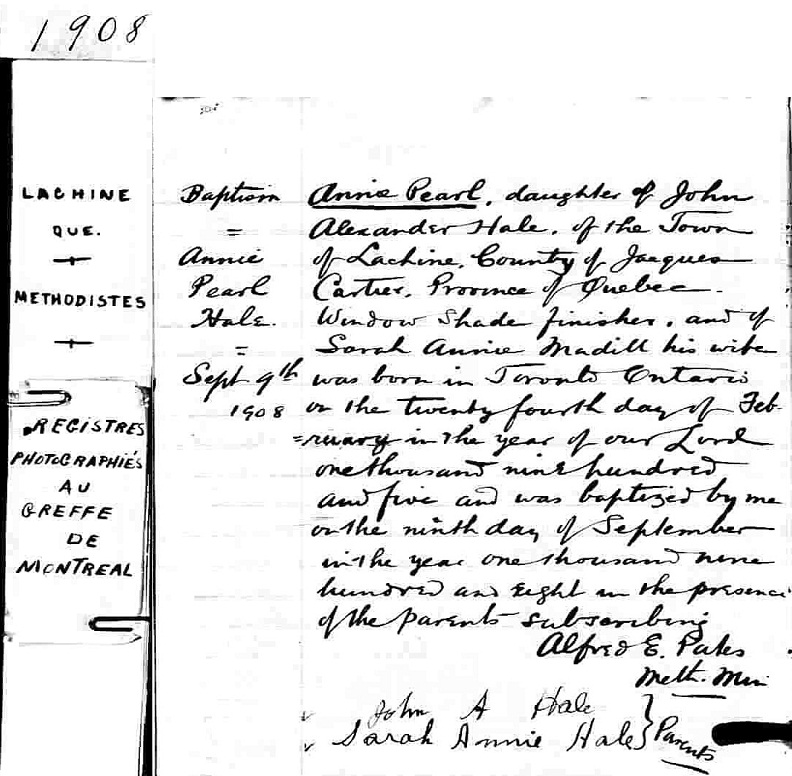 1908
LACHINE
QUE.
METHODISTES
REGISTRES
PHOTOGRAPHIÉS
AU
GREFFE
DE
MONTREAL
Baptism
=
Annie
Pearl
Hale.
=
Sept 9th
1908
Annie Pearl, daughter of John
Alexander Hale, of the Town
of Lachine, County of Jacques
Cartier, Province of Quebec.
Window Shade finisher, and of
Sarah Annie Madill his wife
was born in Toronto Ontario
on the twenty fourth day of Feb-
=ruary in the year of our Lord
one thousand nine hundred
and five and was baptized by me
on the ninth day of September
in the year one thousand nine
hundred and eight in the presence
of the parents subscribing
Alfred E. Pates
Meth. Min
John A Hale
Sarah Annie Hale } Parents